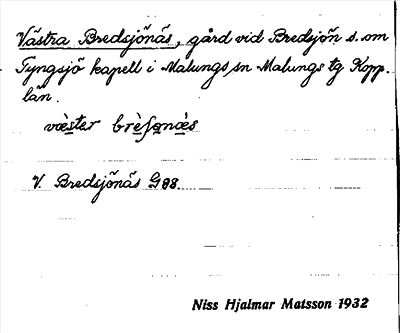 Västra Bredsjönäs, gård vid Bredsjön s. om
Tyngsjö kapell i Malungs sn Malungs tg Kopp.
län.
væ̀ster brèʃønæ̀s
V. Bredsjönäs G88.
Niss Hjalmar Matsson 1932